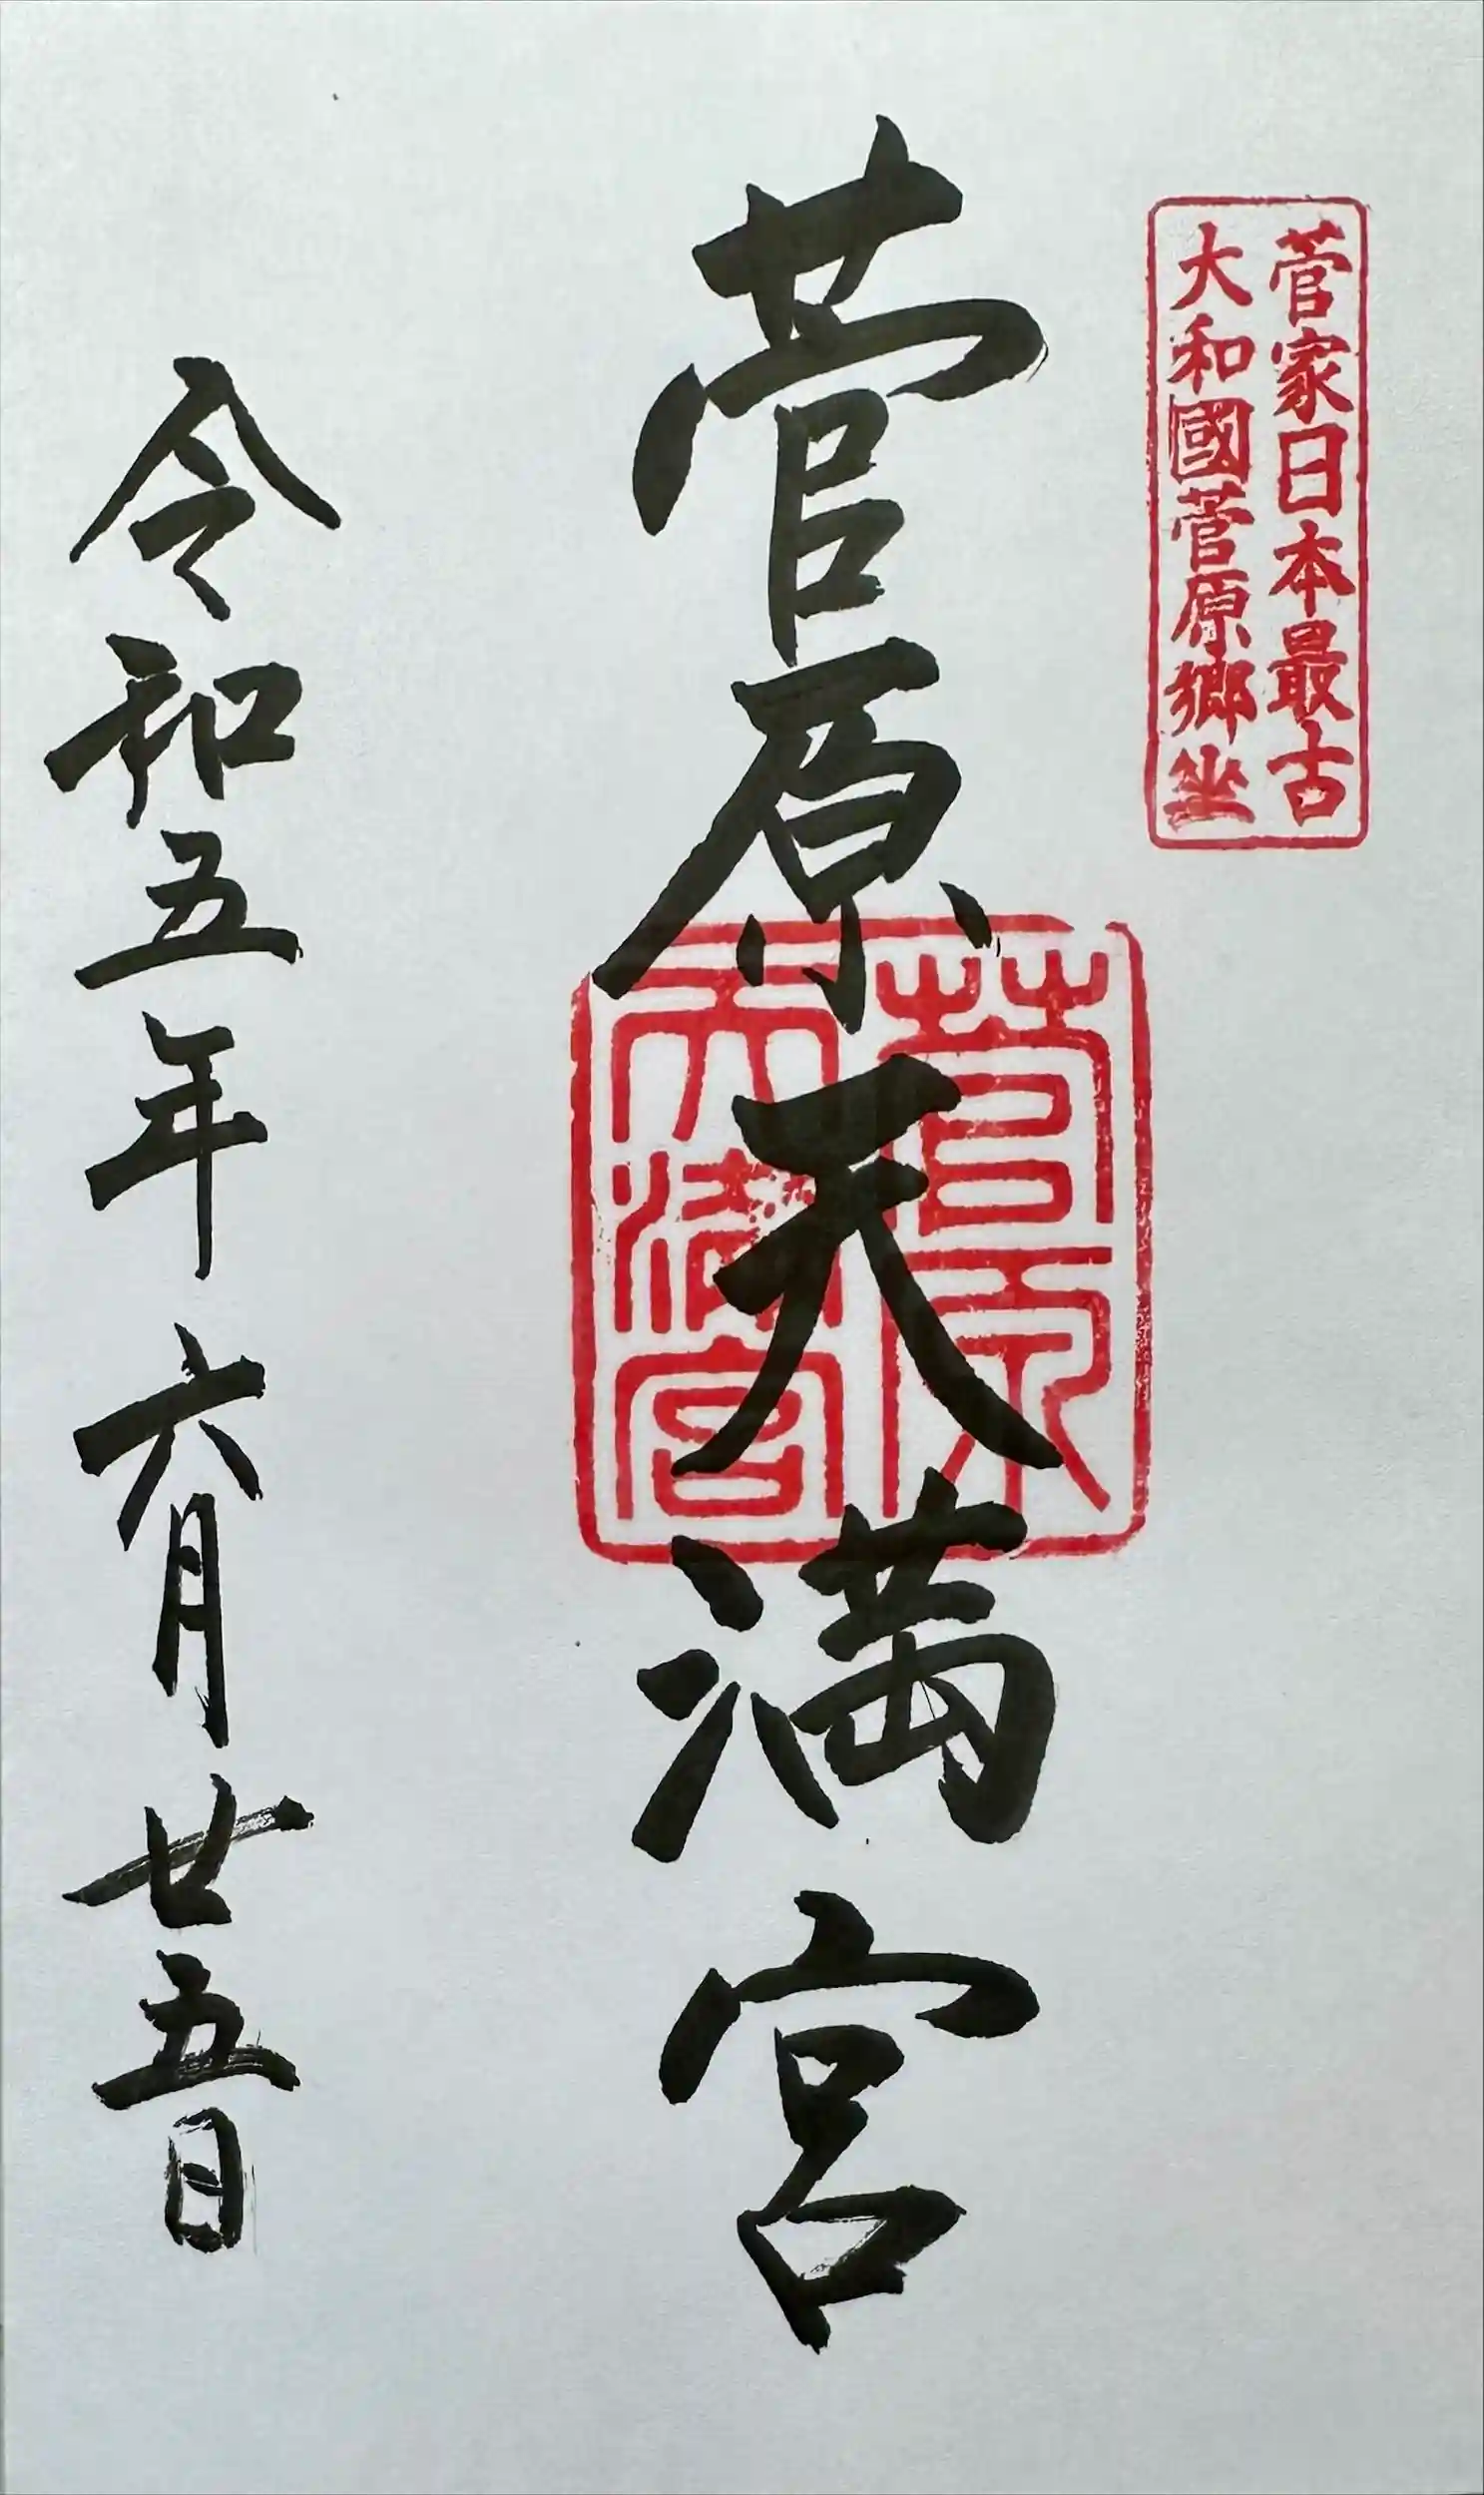 菅家日本最古
大和國菅原郷坐
菅原天満宮
菅原
天満宮
令和五年六月廿五日